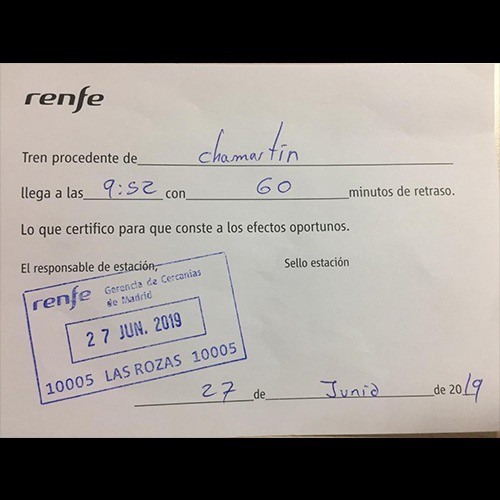 renfe
Tren procedente de chamartin
llega a las 9:52 con 60 minutos de retraso.
Lo que certifico para que conste a los efectos oportunos.
El responsable de estación, Sello estación
renfe Gerencia de Cercanías
de Madrid
27 JUN. 2019
10005 LAS ROZAS 10005
27 de Junio de 2019